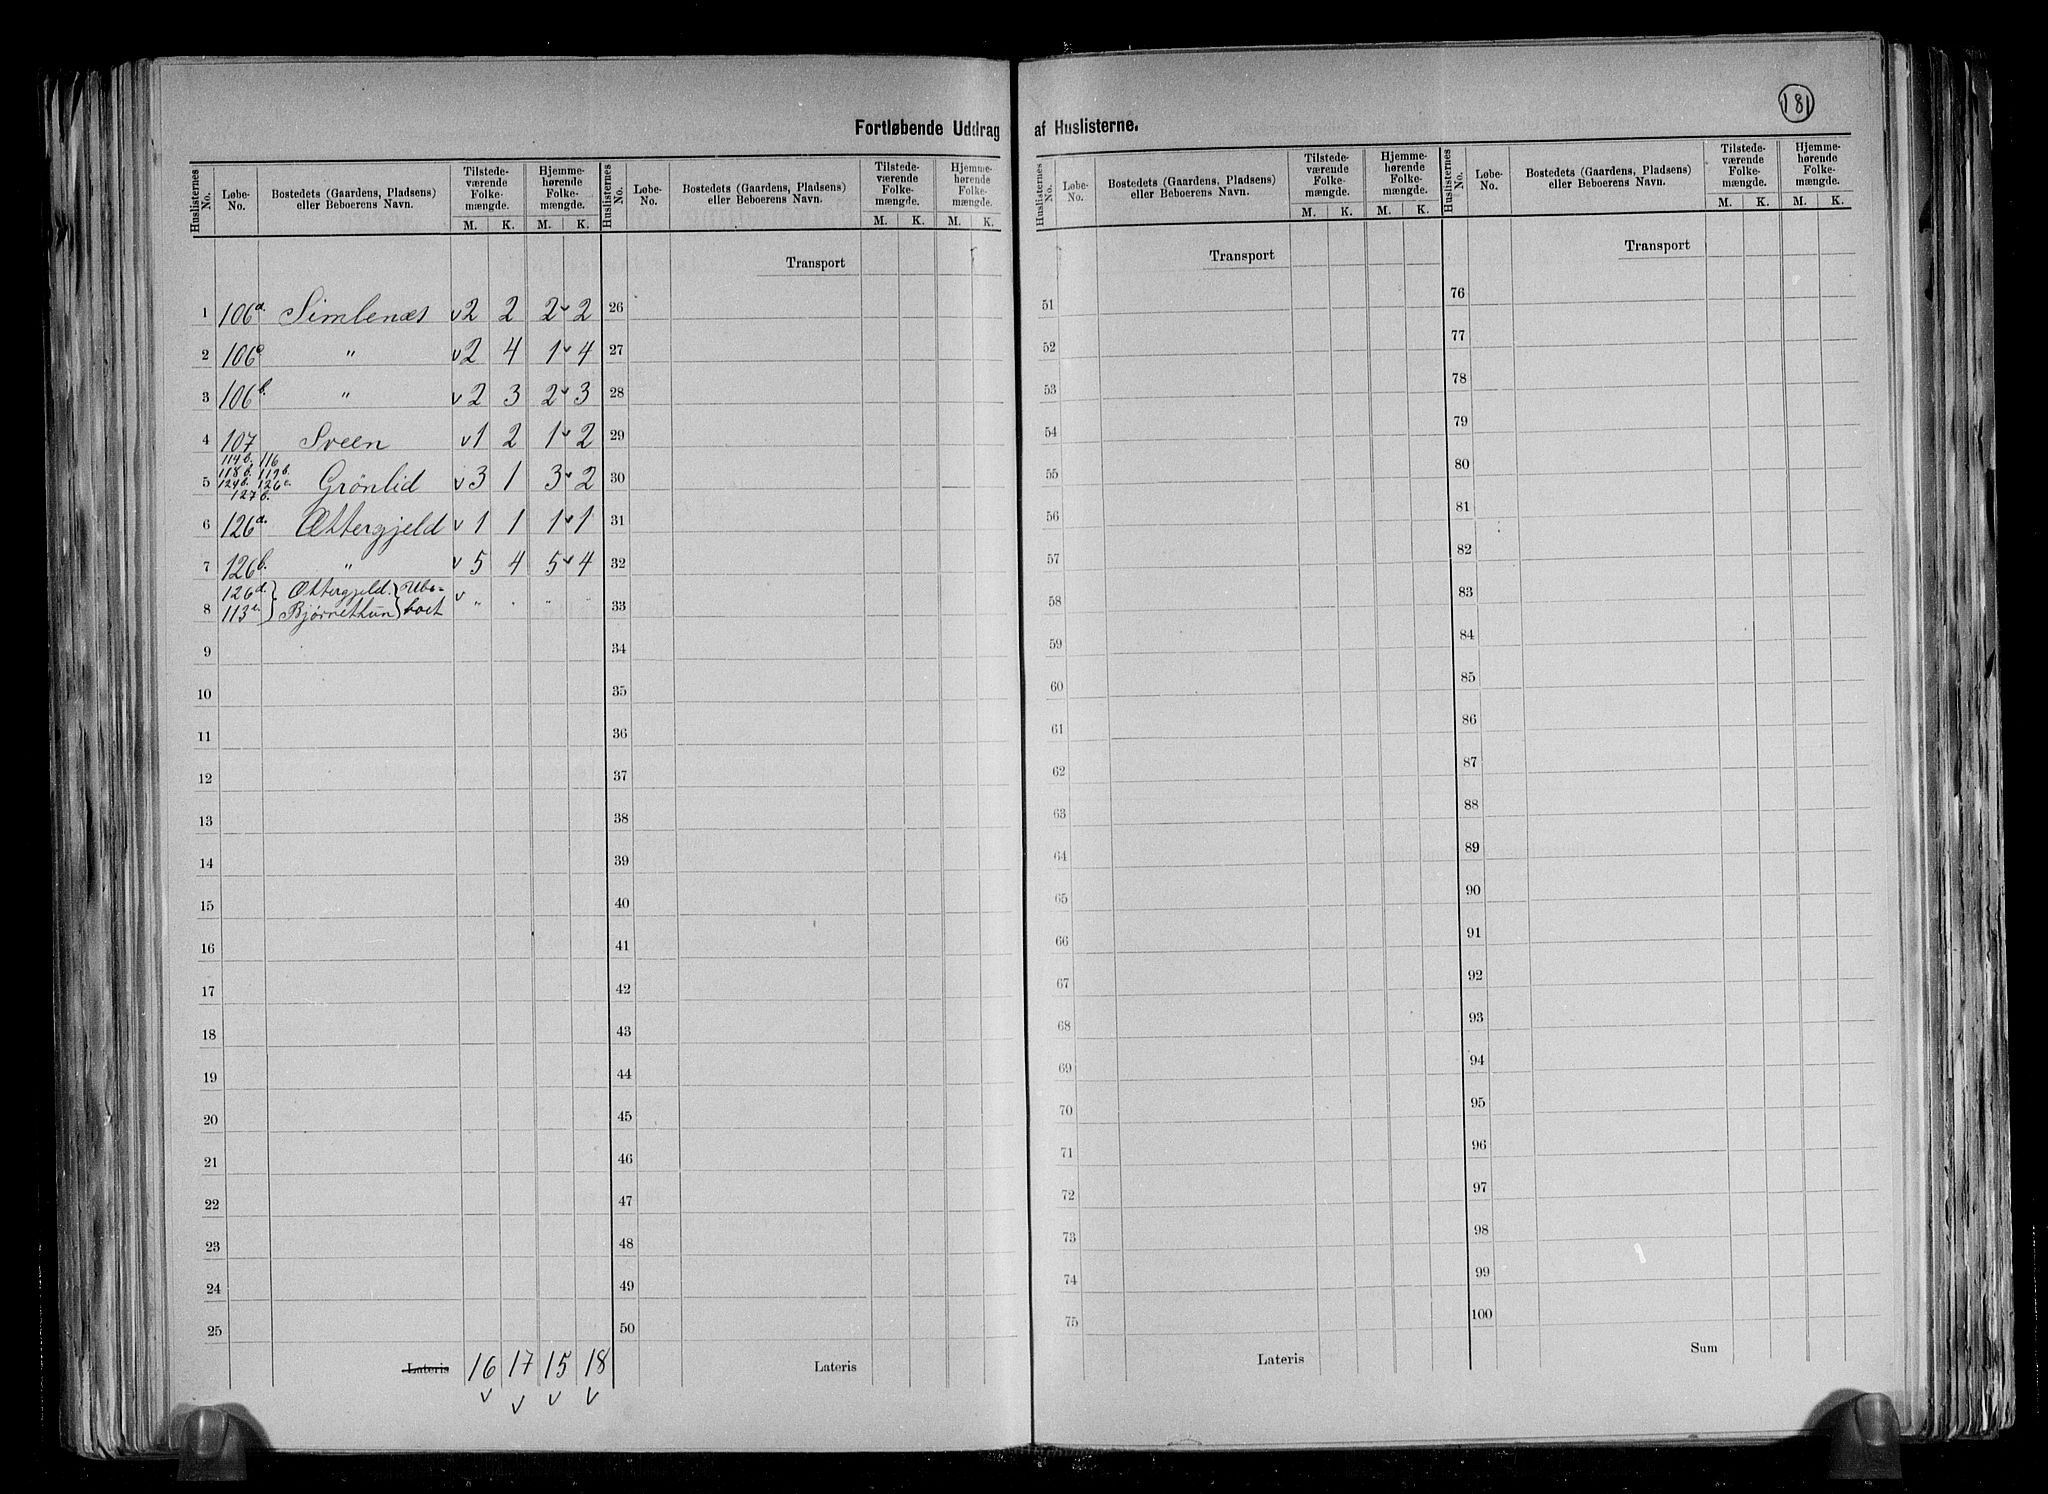 181
Fortløbende Uddrag af Huslisterne.
Huslisternes No. | Løbe-No. | Bostedets (Gaardens, Pladsens) eller Beboerens Navn. | Tilstedeværende Folkemængde. M. K. | Hjemmehørende Folkemængde. M. K.
Huslisternes No. | Løbe-No. | Bostedets (Gaardens, Pladsens) eller Beboerens Navn. | Tilstedeværende Folkemængde. M. K. | Hjemmehørende Folkemængde. M. K.
Huslisternes No. | Løbe-No. | Bostedets (Gaardens, Pladsens) eller Beboerens Navn. | Tilstedeværende Folkemængde. M. K. | Hjemmehørende Folkemængde. M. K.
Huslisternes No. | Løbe-No. | Bostedets (Gaardens, Pladsens) eller Beboerens Navn. | Tilstedeværende Folkemængde. M. K. | Hjemmehørende Folkemængde. M. K.
1 106a. Simlenæs v 2 2 2 v 2
2 106c " v 2 4 1 v 4
3 106b. " v 2 3 2 v 3
4 107 Sveen v 1 2 1 v 2
5 114b. 116 118b. 119b. 124b. 126c. 127b. Grönlid v 3 1 3 v 2
6 126a. Ættergjeld v 1 1 1 v 1
7 126b. " v 5 4 5 v 4
8 126d. Ættergjeld. 113a. Bjørnethun Ubeboet v " " " "
9
10
11
12
13
14
15
16
17
18
19
20
21
22
23
24
25
Lateris 16 17 15 18
v v v v
Transport
26
27
28
29
30
31
32
33
34
35
36
37
38
39
40
41
42
43
44
45
46
47
48
49
50
Lateris
Transport
51
52
53
54
55
56
57
58
59
60
61
62
63
64
65
66
67
68
69
70
71
72
73
74
75
Lateris
Transport
76
77
78
79
80
81
82
83
84
85
86
87
88
89
90
91
92
93
94
95
96
97
98
99
100
Sum